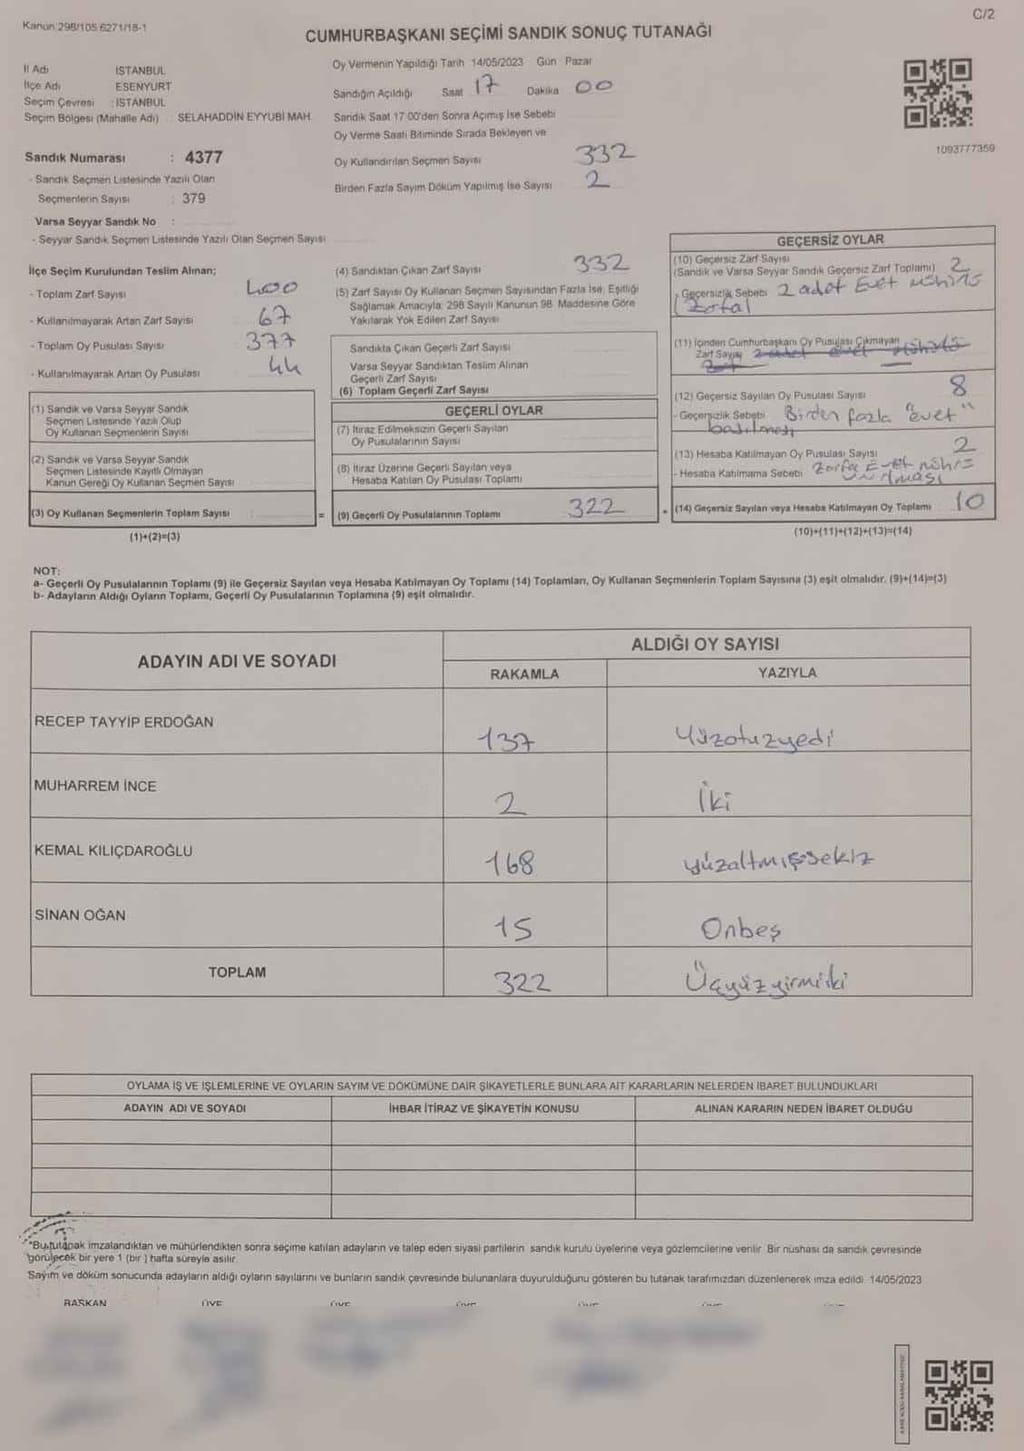 Kanun:298/105.6271/18-1
C/2
CUMHURBAŞKANI SEÇİMİ SANDIK SONUÇ TUTANAĞI
İl Adı : İSTANBUL
İlçe Adı : ESENYURT
Seçim Çevresi : İSTANBUL
Seçim Bölgesi (Mahalle Adı) : SELAHADDİN EYYUBİ MAH.
Sandık Numarası : 4377
- Sandık Seçmen Listesinde Yazılı Olan
Seçmenlerin Sayısı : 379
Varsa Seyyar Sandık No :
- Seyyar Sandık Seçmen Listesinde Yazılı Olan Seçmen Sayısı
Oy Vermenin Yapıldığı Tarih 14/05/2023 Gün Pazar
Sandığın Açıldığı Saat 17 Dakika 00
Sandık Saat 17.00'den Sonra Açılmış İse Sebebi
Oy Verme Saati Bitiminde Sırada Bekleyen ve
Oy Kullandırılan Seçmen Sayısı 332
Birden Fazla Sayım Döküm Yapılmış İse Sayısı 2
1093777359
İlçe Seçim Kurulundan Teslim Alınan;
- Toplam Zarf Sayısı 400
- Kullanılmayarak Artan Zarf Sayısı 67
- Toplam Oy Pusulası Sayısı 377
- Kullanılmayarak Artan Oy Pusulası 44
(1) Sandık ve Varsa Seyyar Sandık
Seçmen Listesinde Yazılı Olup
Oy Kullanan Seçmenlerin Sayısı
(2) Sandık ve Varsa Seyyar Sandık
Seçmen Listesinde Kayıtlı Olmayan
Kanun Gereği Oy Kullanan Seçmen Sayısı
(3) Oy Kullanan Seçmenlerin Toplam Sayısı :
(1)+(2)=(3)
(4) Sandıktan Çıkan Zarf Sayısı 332
(5) Zarf Sayısı Oy Kullanan Seçmen Sayısından Fazla İse, Eşitliği
Sağlamak Amacıyla; 298 Sayılı Kanunun 98. Maddesine Göre
Yakılarak Yok Edilen Zarf Sayısı
Sandıkta Çıkan Geçerli Zarf Sayısı
Varsa Seyyar Sandıktan Teslim Alınan
Geçerli Zarf Sayısı
(6) Toplam Geçerli Zarf Sayısı
GEÇERLİ OYLAR
(7) İtiraz Edilmeksizin Geçerli Sayılan
Oy Pusulalarının Sayısı
(8) İtiraz Üzerine Geçerli Sayılan veya
Hesaba Katılan Oy Pusulası Toplamı
= (9) Geçerli Oy Pusulalarının Toplamı 322
GEÇERSİZ OYLAR
(10) Geçersiz Zarf Sayısı
(Sandık ve Varsa Seyyar Sandık Geçersiz Zarf Toplamı) 2
- Geçersizlik Sebebi 2 adet Evet mührü
(11) İçinden Cumhurbaşkanı Oy Pusulası Çıkmayan
Zarf Sayısı
(12) Geçersiz Sayılan Oy Pusulası Sayısı 8
- Geçersizlik Sebebi Birden fazla "evet"
basılması
(13) Hesaba Katılmayan Oy Pusulası Sayısı 2
- Hesaba Katılmama Sebebi Zarfa Evet mührü
vurulması
(14) Geçersiz Sayılan veya Hesaba Katılmayan Oy Toplamı 10
(10)+(11)+(12)+(13)=(14)
NOT:
a- Geçerli Oy Pusulalarının Toplamı (9) ile Geçersiz Sayılan veya Hesaba Katılmayan Oy Toplamı (14) Toplamları, Oy Kullanan Seçmenlerin Toplam Sayısına (3) eşit olmalıdır. (9)+(14)=(3)
b- Adayların Aldığı Oyların Toplamı, Geçerli Oy Pusulalarının Toplamına (9) eşit olmalıdır.
ADAYIN ADI VE SOYADI
ALDIĞI OY SAYISI
RAKAMLA YAZIYLA
RECEP TAYYİP ERDOĞAN 137 Yüzotuzyedi
MUHARREM İNCE 2 İki
KEMAL KILIÇDAROĞLU 168 yüzaltmışsekiz
SİNAN OĞAN 15 Onbeş
TOPLAM 322 Üçyüzyirmiiki
OYLAMA İŞ VE İŞLEMLERİNE VE OYLARIN SAYIM VE DÖKÜMÜNE DAİR ŞİKAYETLERLE BUNLARA AİT KARARLARIN NELERDEN İBARET BULUNDUKLARI
ADAYIN ADI VE SOYADI İHBAR İTİRAZ VE ŞİKAYETİN KONUSU ALINAN KARARIN NEDEN İBARET OLDUĞU
*Bu tutanak imzalandıktan ve mühürlendikten sonra seçime katılan adayların ve talep eden siyasi partilerin sandık kurulu üyelerine veya gözlemcilerine verilir. Bir nüshası da sandık çevresinde
görülecek bir yere 1 (bir ) hafta süreyle asılır.
Sayım ve döküm sonucunda adayların aldığı oyların sayılarını ve bunların sandık çevresinde bulunanlara duyurulduğunu gösteren bu tutanak tarafımızdan düzenlenerek imza edildi. 14/05/2023
BAŞKAN ÜYE ÜYE ÜYE ÜYE ÜYE